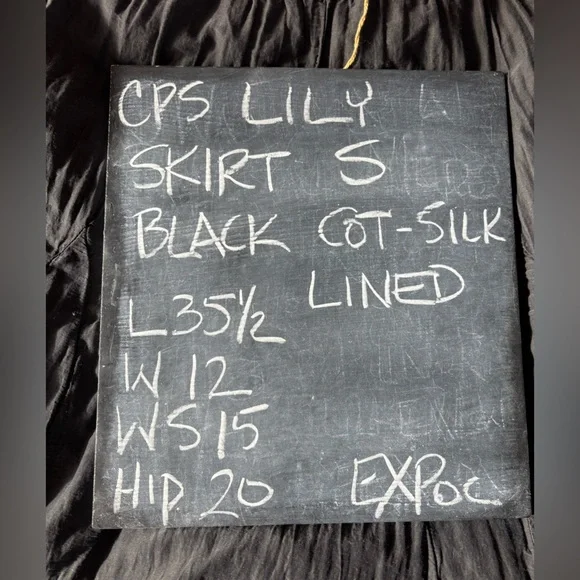 CPS LILY
SKIRT S
BLACK COT-SILK
LINED
L35½
W 12
WS 15
HIP 20 EXPOC